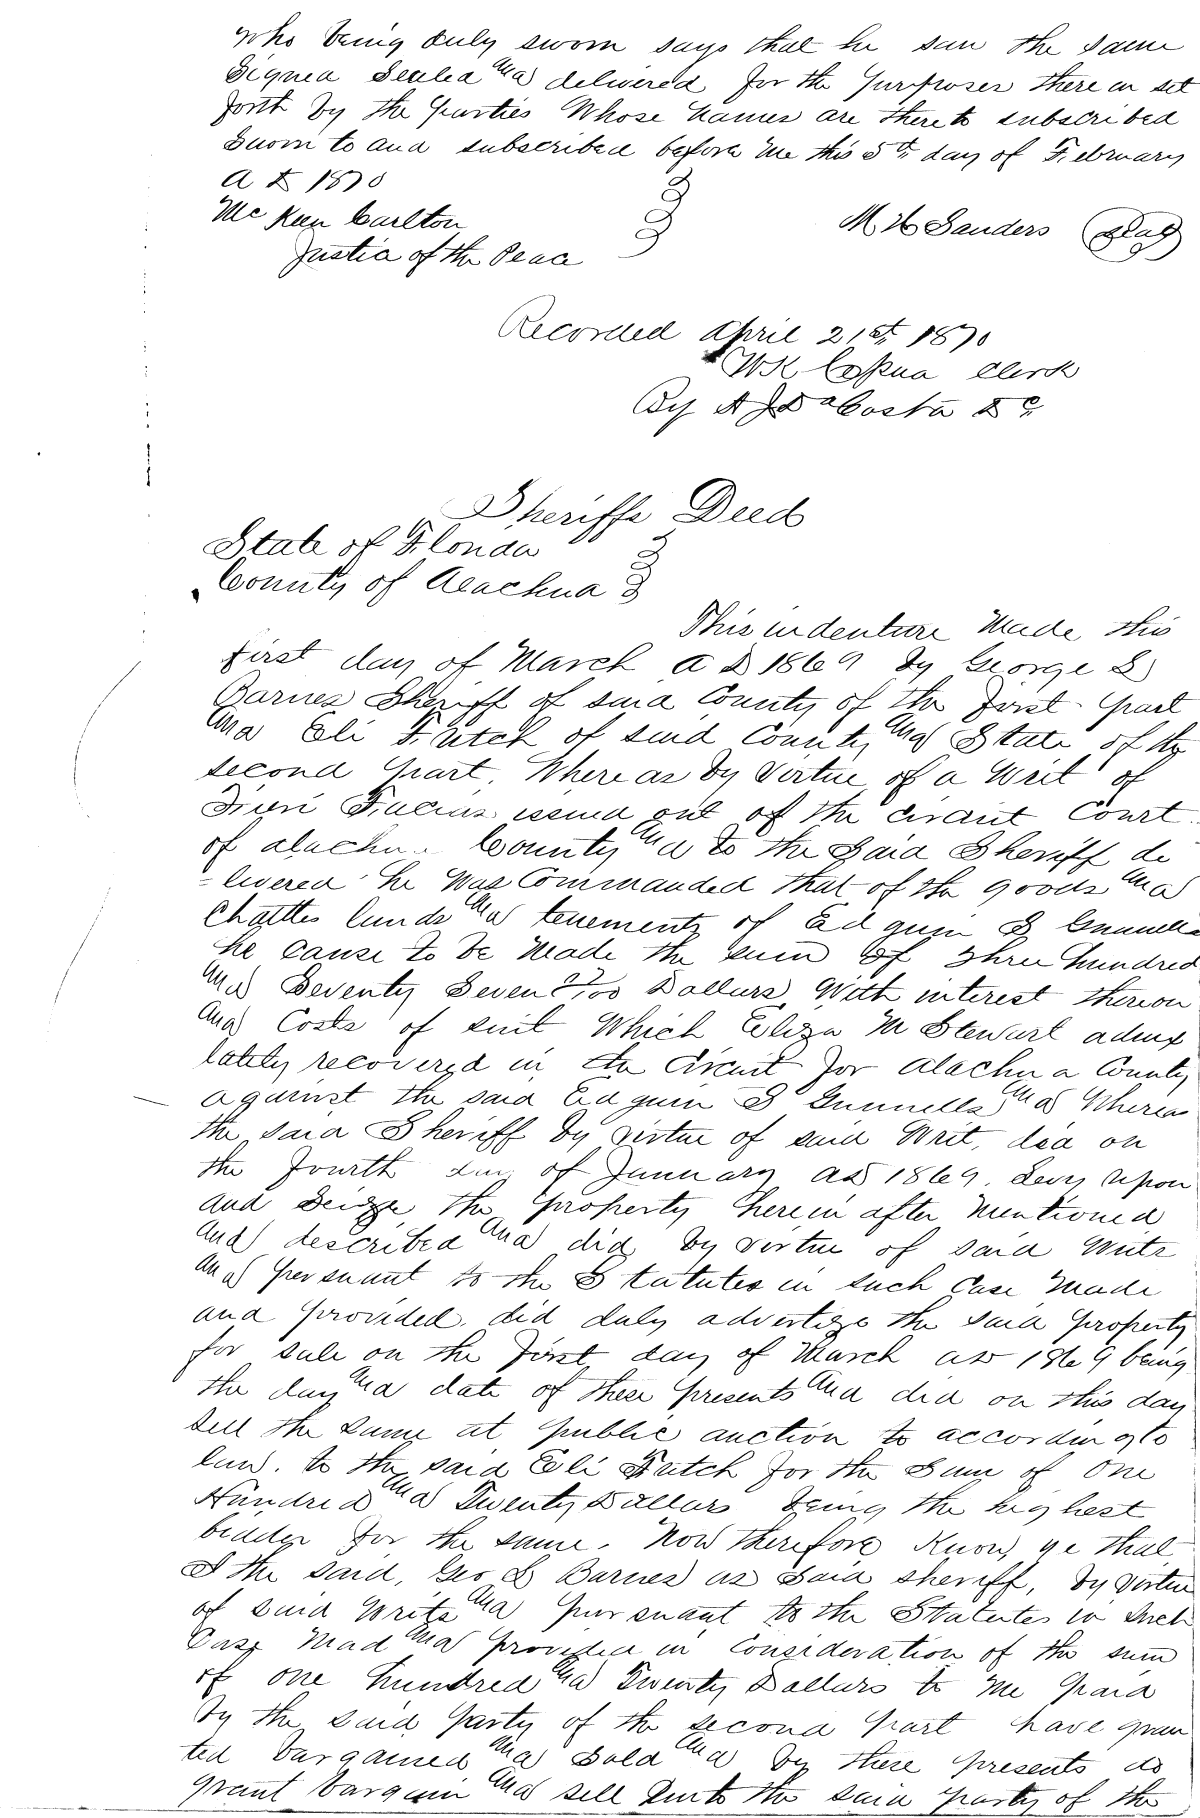 who being duly sworn says that he saw the same
Signed Sealed and delivered for the purposes there in set
forth by the parties Whose names are thereto subscribed
Sworn to and subscribed before me this 5th day of February
A D 1870
McKeen Carlton
Justice of the Peace
M H Sanders Seal
Recorded April 21st 1870
W K Cessna Clerk
By A J DaCosta D C
Sheriffs Deed
State of Florida
County of Alachua
This indenture Made this
first day of March A D 1869 by George L
Barnes Sheriff of said County of the first part
and Eli Futch of said County and State of the
second part, Whereas by virtue of a Writ of
Fieri Facias issued out of the Circuit Court
of Alachua County and to the Said Sheriff de
-livered he Was Commanded that of the goods and
Chattles lands and tenements of Edguin S Gunnells
he cause to be Made the sum of Three hundred
and Seventy Seven /100 Dollars With interest thereon
and Costs of suit Which Eliza M Stewart admx
lately recovered in the Circuit for Alachua County
against the said Edguin S Gunnells and Whereas
the said Sheriff by virtue of said Writ, did on
the fourth day of January AD 1869 Levy upon
and Seize the property herein after Mentioned
and described and did by virtue of said Writs
and persuant to the Statutes in such Case Made
and provided did duly advertize the said property
for sale on the first day of March AD 1869 being
the day and date of these presents and did on this day
sell the same at public auction to according to
law, to the said Eli Futch for the Sum of One
Hundred and Twenty Dollars being the highest
bidder for the same. Now therefore Know ye that
I the said, Geo L Barnes as Said sheriff, by virtue
of said Writs and persuant to the Statutes in Such
Case Mad and provided in Consideration of the sum
of one hundred and Twenty Dollars to Me paid
by the said party of the second part have gran
ted bargained and Sold and by these presents do
grant bargain and sell Unto the said party of the